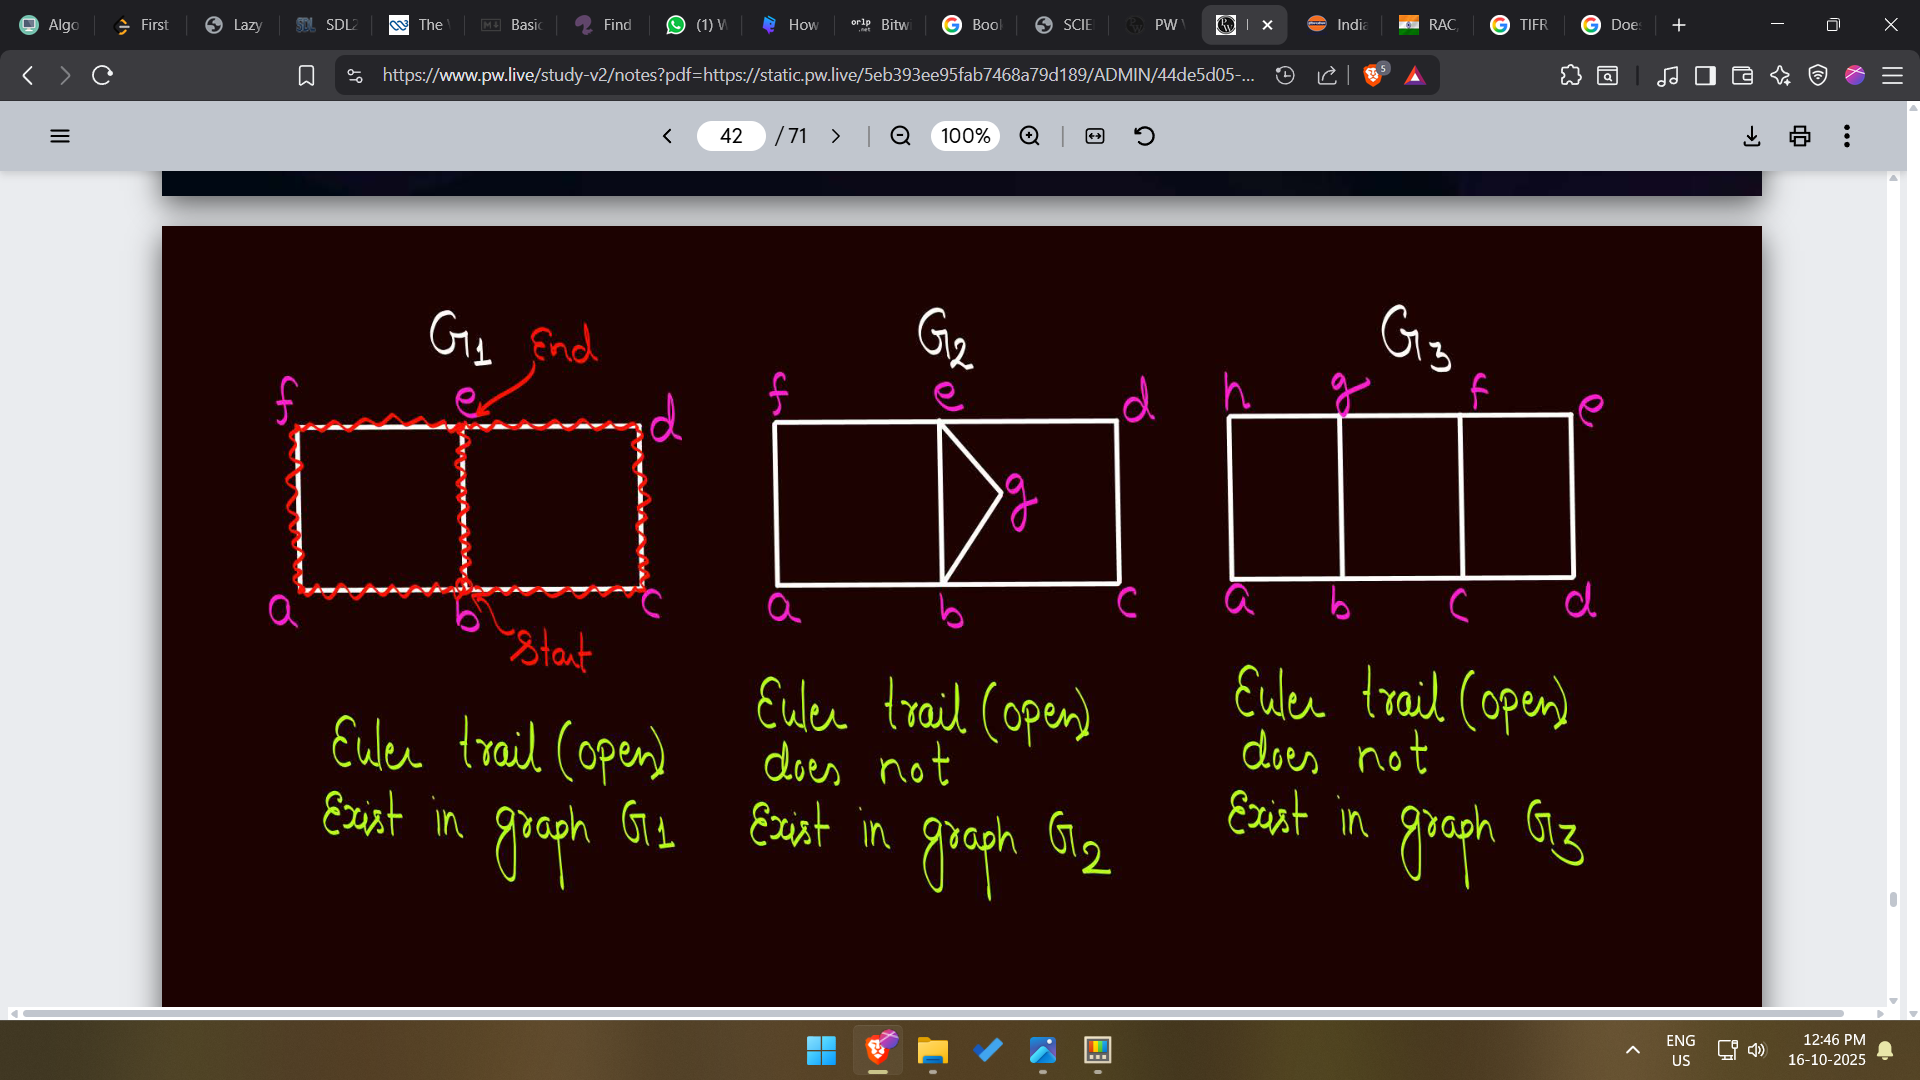 Algo
First
Lazy
SDL2
The
Basic
Find
(1) W
How
orlp .net Bitwi
Book
SCIE
PW
India
RAC,
TIFR
Does
https://www.pw.live/study-v2/notes?pdf=https://static.pw.live/5eb393ee95fab7468a79d189/ADMIN/44de5d05-...
5
42 / 71
100%
G1 End
G2
G3
f e d
f e d
h g f e
g
a b c
a b c
a b c d
Start
Euler trail (open)
Exist in graph G1
Euler trail (open)
does not
Exist in graph G2
Euler trail (open)
does not
Exist in graph G3
ENG
US
12:46 PM
16-10-2025